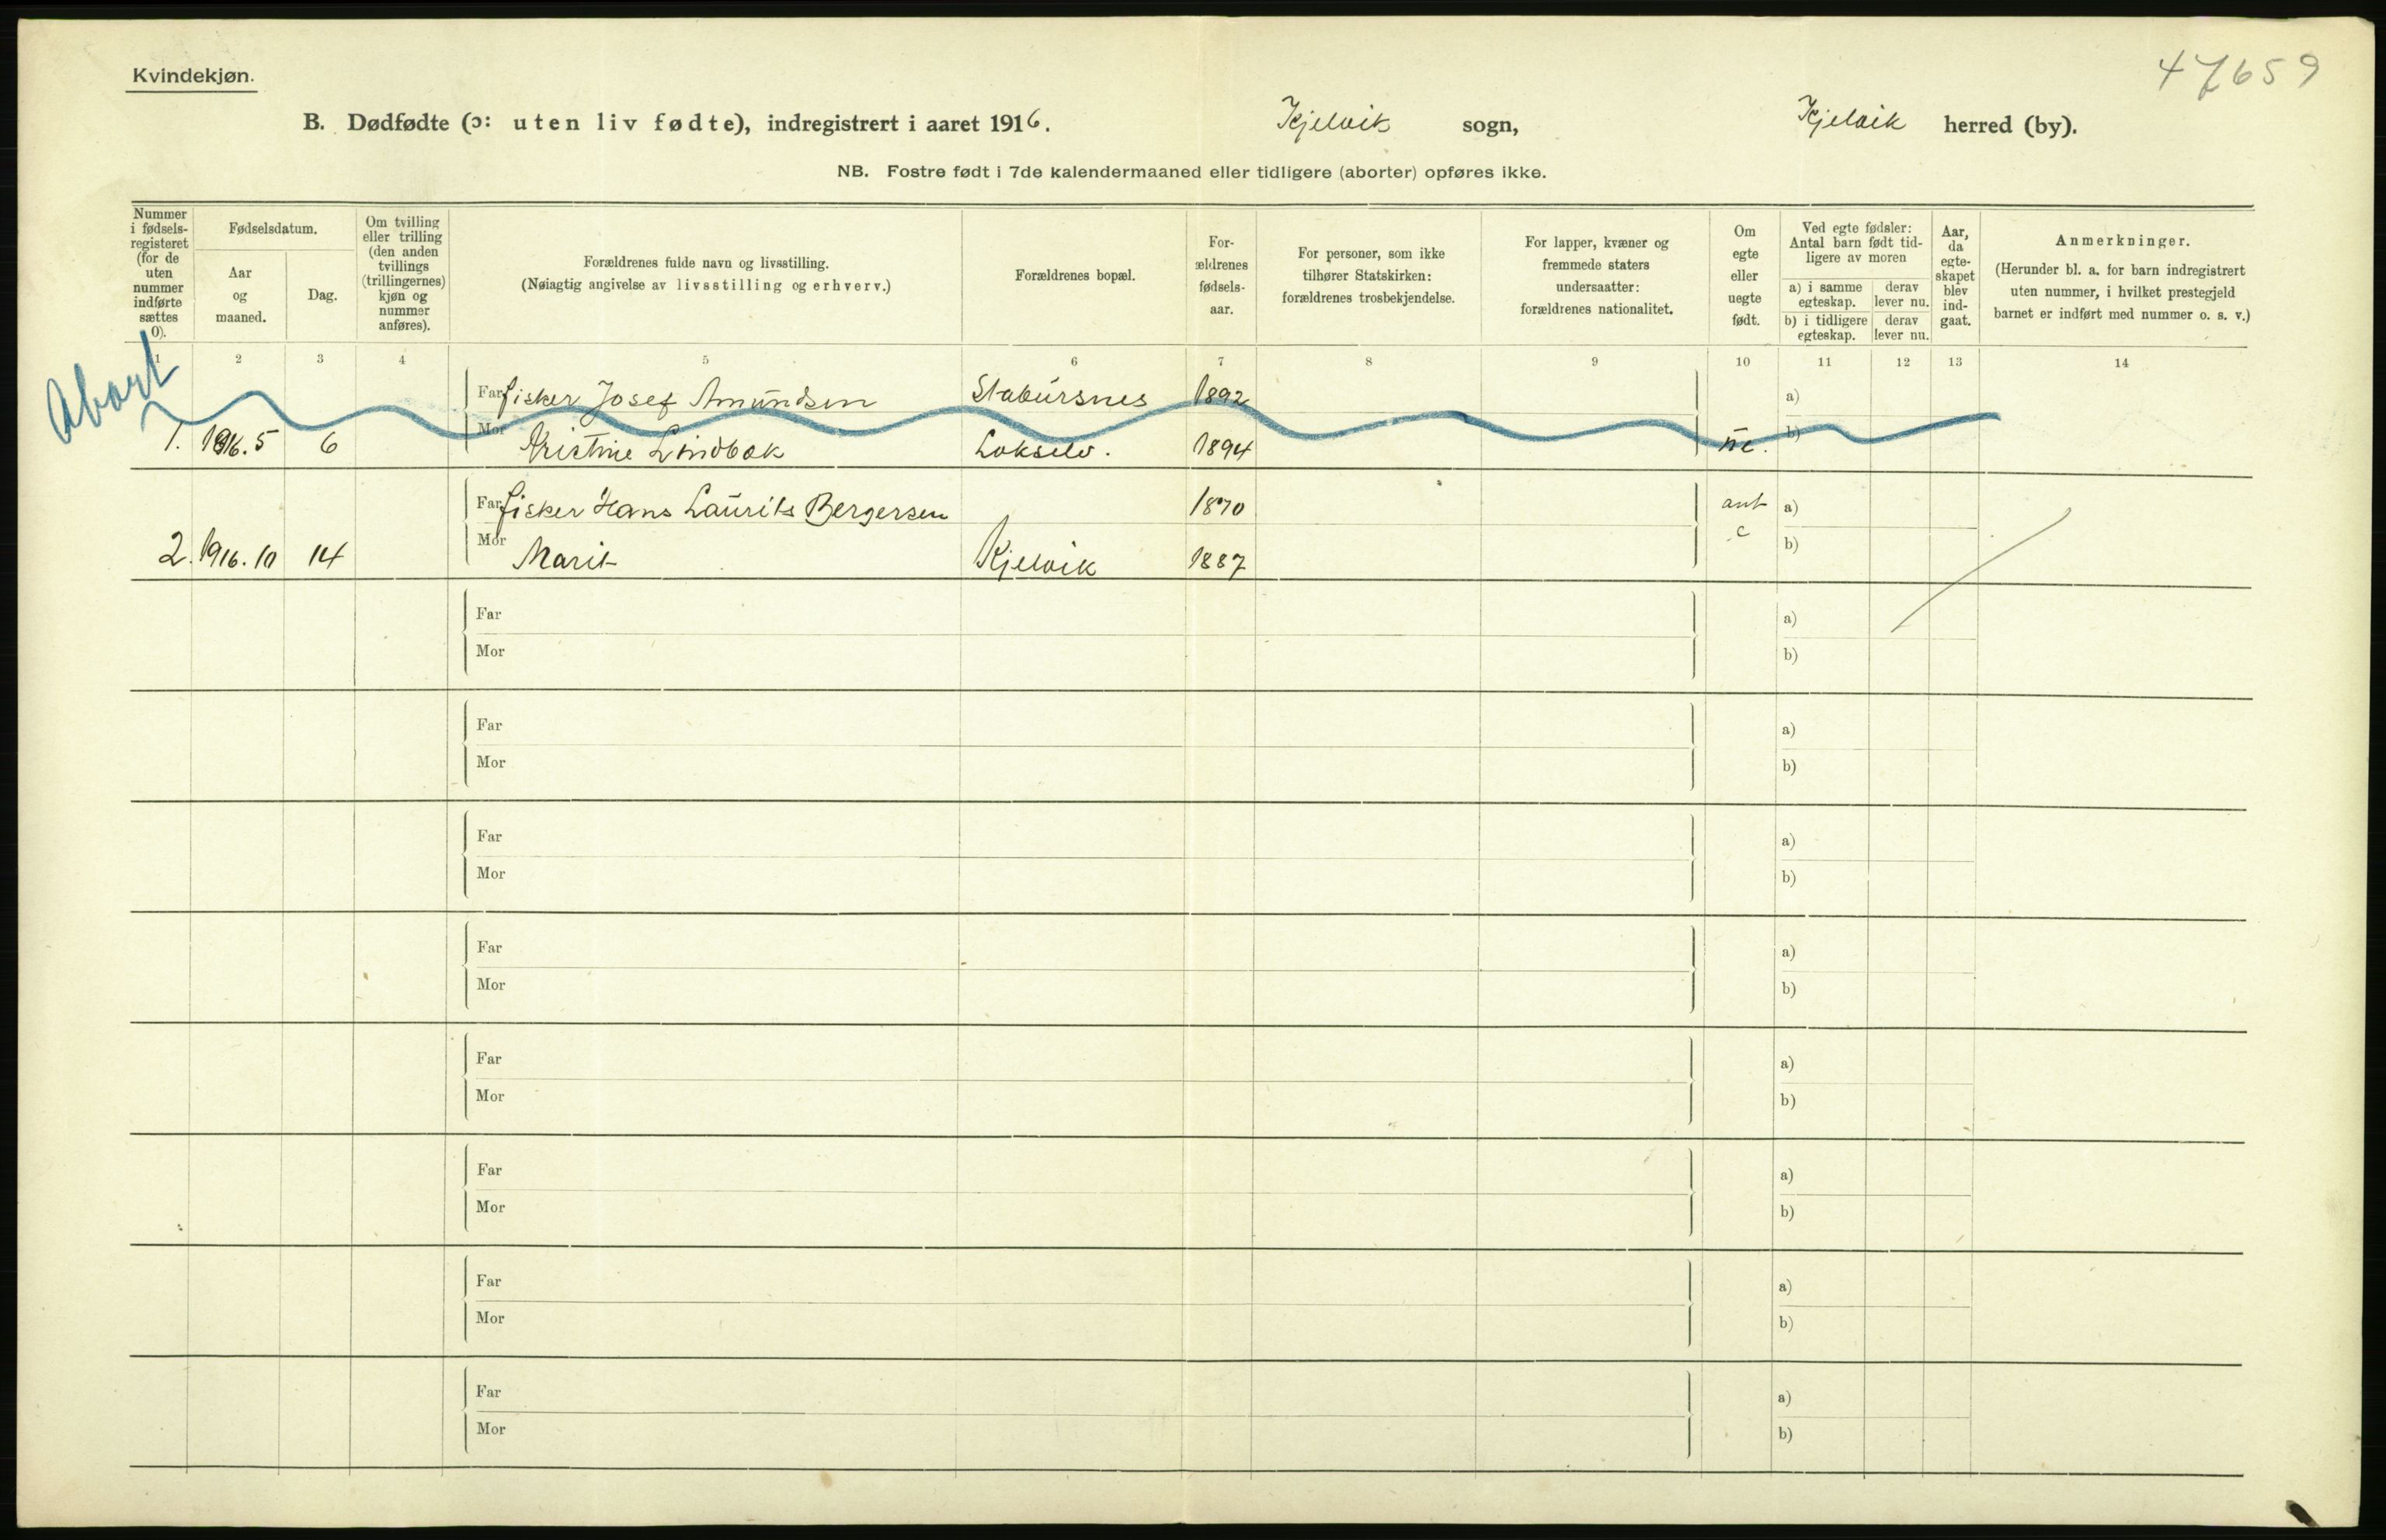 47659
Kvindekjøn.
B. Dødfødte (ɔ: uten liv fødte), indregistrert i aaret 1916. Kjelvik sogn, Kjelvik herred (by).
NB. Fostre født i 7de kalendermaaned eller tidligere (aborter) opføres ikke.
Nummer i fødsels-registeret (for de uten nummer indførte sættes 0).
Fødselsdatum.
Aar og maaned.
Dag.
Om tvilling eller trilling (den anden tvillings (trillingernes) kjøn og nummer anføres).
Forældrenes fulde navn og livsstilling.
(Nøiagtig angivelse av livsstilling og erhverv.)
Forældrenes bopæl.
For-ældrenes fødsels-aar.
For personer, som ikke tilhører Statskirken: forældrenes trosbekjendelse.
For lapper, kvæner og fremmede staters undersaatter: forældrenes nationalitet.
Om egte eller uegte født.
Ved egte fødsler: Antal barn født tid-ligere av moren
a) i samme egteskap. derav lever nu.
b) i tidligere egteskap. derav lever nu.
Aar, da egte-skapet blev ind-gaat.
Anmerkninger.
(Herunder bl. a. for barn indregistrert uten nummer, i hvilket prestegjeld barnet er indført med nummer o. s. v.)
1 2 3 4 5 6 7 8 9 10 11 12 13 14
Abort
Far fisker Josef Amundsen Stabursnes 1892 a)
1. 1916. 5 6 Mor Kristine Lindbak Lakselv. 1894 ue. b)
Far fisker Hans Laurits Bergersen 1870 a)
2. 1916. 10 14 Mor Marit Kjelvik 1887 b)
Far a)
Mor b)
Far a)
Mor b)
Far a)
Mor b)
Far a)
Mor b)
Far a)
Mor b)
Far a)
Mor b)
Far a)
Mor b)
Far a)
Mor b)